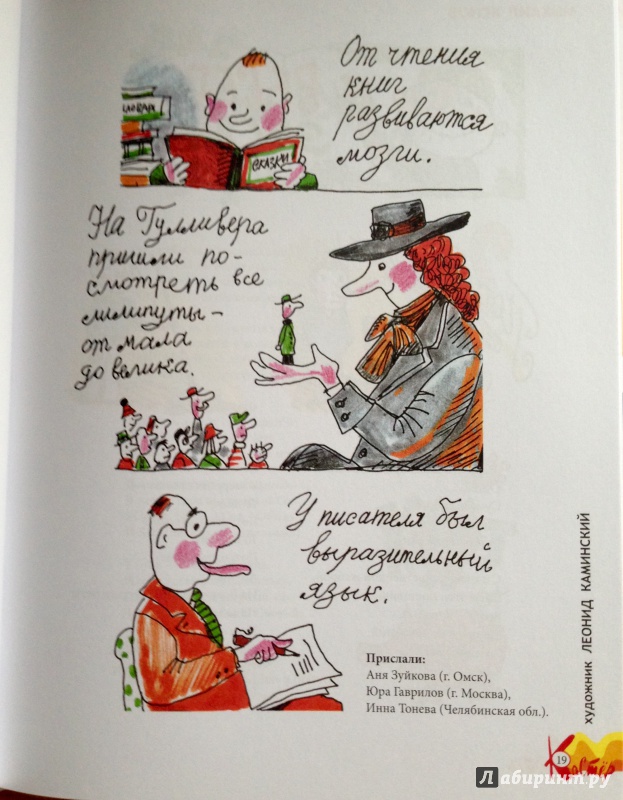 От чтения
книг
развиваются
мозги.
СЛОВАРЬ
СКАЗКИ
На Гулливера
пришли по-
смотреть все
лилипуты –
от мала
до велика.
У писателя был
выразительный
язык.
Прислали:
Аня Зуйкова (г. Омск),
Юра Гаврилов (г. Москва),
Инна Тонева (Челябинская обл.).
художник ЛЕОНИД КАМИНСКИЙ
Костёр
19
Лабиринт.ру